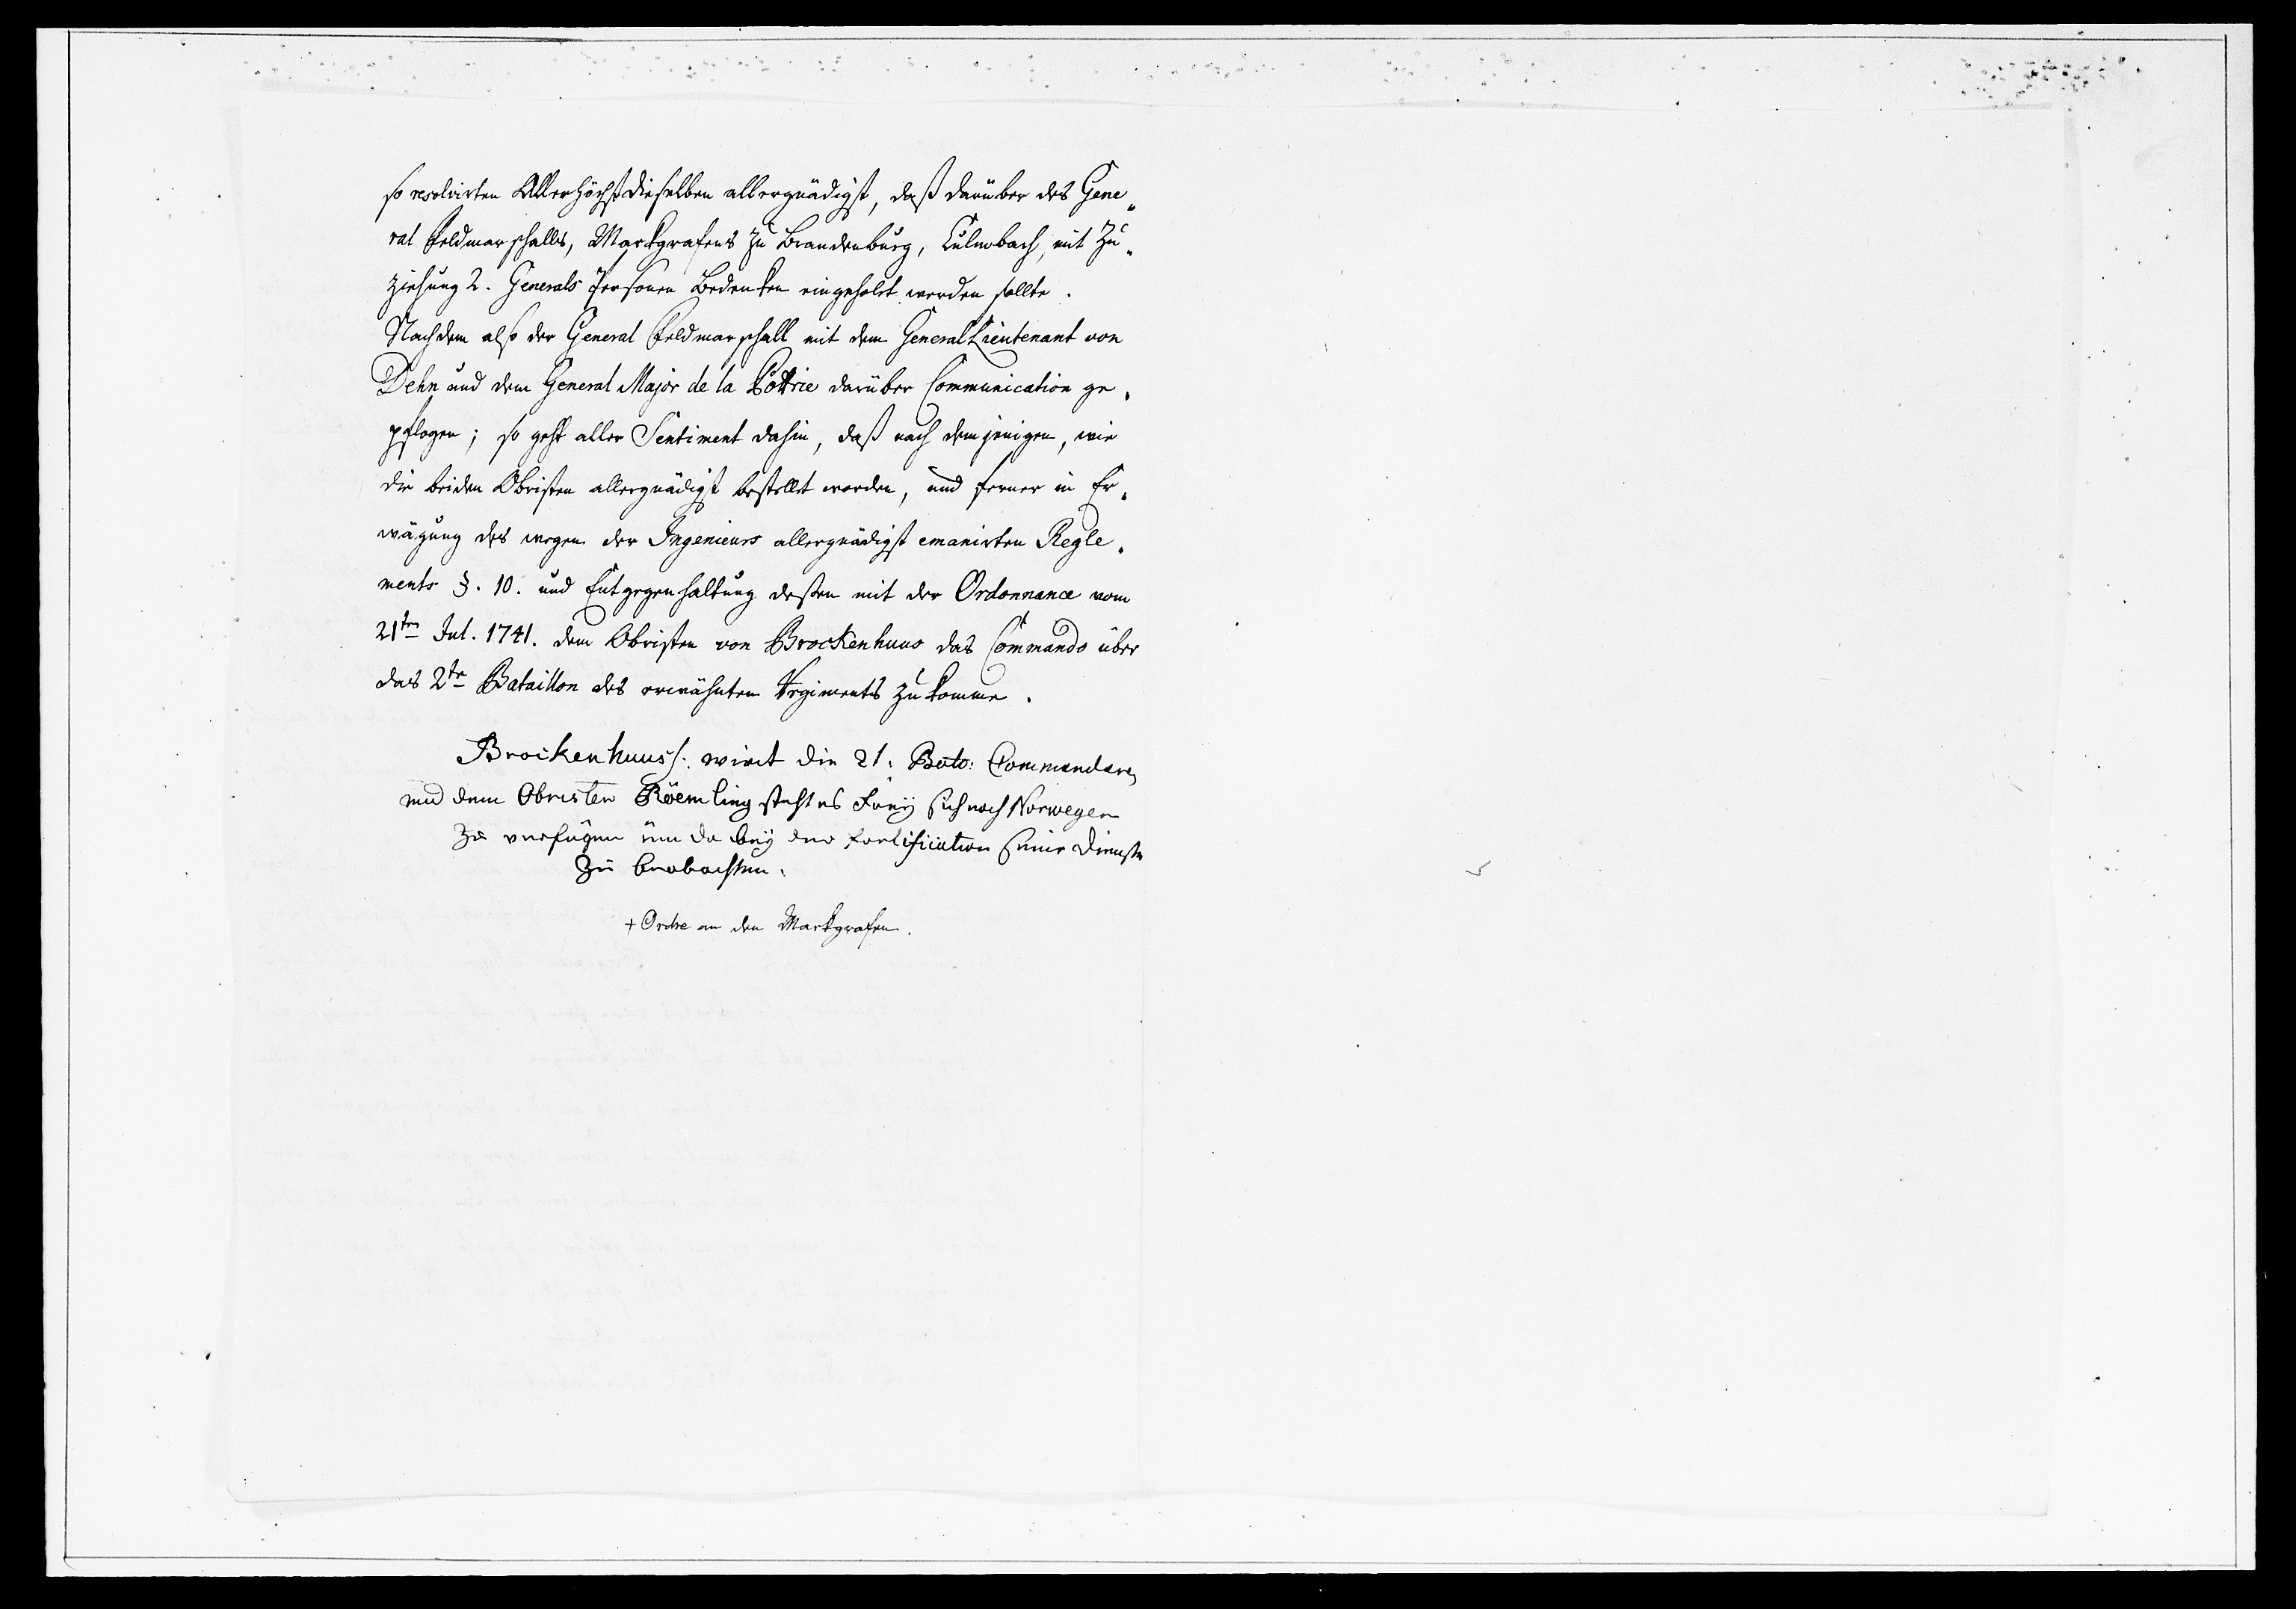 so resolvirten Allerhöchstdieselben allergnädigst, daß darüber des Gene„
ral Feldmarschalls, Markgrafens zu Brandenburg, Culmbach, mit Zu„
ziehung 2. Generals Personen Bedenken eingeholet werden sollte.
Nachdem also der General Feldmarschall mit dem General Lieutenant von
Dehn und dem General Major de la Pottrie darüber Communication ge„
pflogen; so geht aller Sentiment dahin, daß nach demjenigen, wie
die beiden Obristen allergnädigst bestellet worden, und ferner in Er„
wägung des wegen der Ingenieurs allergnädigst emanirten Regle„
ments §. 10. und Entgegenhaltung deßen mit der Ordonnance vom
21ten Jul. 1741. dem Obristen von Brockenhuus das Commando über
das 2te Bataillon des erwähnten Regiments zukomme.
Brockenhuus wirt die 21: Bato: Commandere,
und dem Obristen Röemling steht es Freÿ sich nach Norwegen
zu verfügen üm da beÿ der fortification seine Dienste
zu beobachten.
+ Ordre an den Markgrafen.